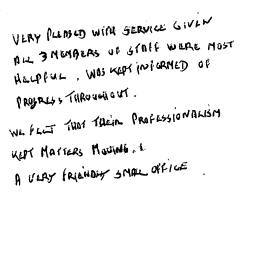 VERY PLEASED WITH SERVICE GIVEN
ALL 3 MEMBERS OF STAFF WERE MOST
HELPFUL. WAS KEPT INFORMED OF
PROGRESS THROUGHOUT.
WE FELT THAT THEIR PROFESSIONALISM
KEPT MATTERS MOVING.
A VERY FRIENDLY SMALL OFFICE.